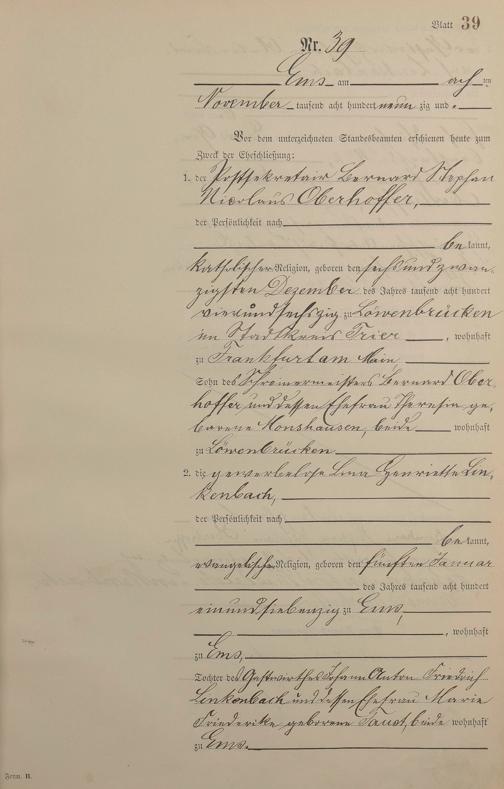 Blatt 39
Nr. 39
Ems am acht ten
November tausend acht hundert neunzig und
Vor dem unterzeichneten Standesbeamten erschienen heute zum
Zweck der Eheschließung:
1. der Postsekretair Bernard Stephan
Nicolaus Oberhoffer,
der Persönlichkeit nach
be kannt,
katholischer Religion, geboren den sechsundzwan-
zigsten Dezember des Jahres tausend acht hundert
vierundsechszig zu Löwenbrücken
im Stadtkreis Trier , wohnhaft
zu Frankfurt am Main
Sohn des Schreinermeisters Bernard Ober-
hoffer und dessen Ehefrau Theresia ge-
borene Monshausen, beide wohnhaft
zu Löwenbrücken
2. die gewerbelose Lina Henriette Lin-
kenbach,
der Persönlichkeit nach
be kannt,
evangelischer Religion, geboren den fünften Januar
des Jahres tausend acht hundert
einundsiebenzig zu Ems,
, wohnhaft
zu Ems,
Tochter des Gastwirthes Johann Anton Friedrich
Linkenbach und dessen Ehefrau Marie
Friederike geborene Faust, beide wohnhaft
zu Ems.
Form. B.